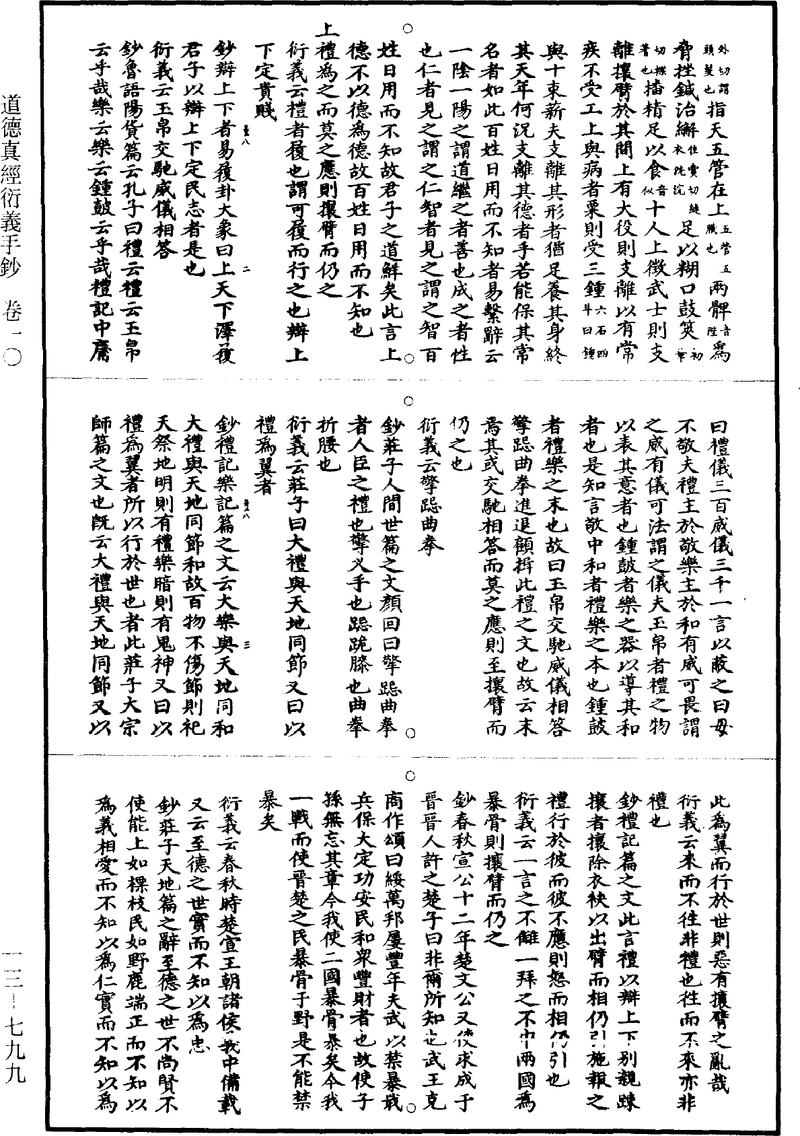 外切謂
頭髮也
指天五管在上
五管五
臟也
兩髀
音
陛
爲
脅挫鍼治繲
佳賣切
衣洗浣
足以糊口鼓筴
初
革
切揲
蓍也
播精足以食
音
似
十人上徵武士則支
離攘臂於其間上有大役則支離以有常
疾不受工上與病者粟則受三鍾
六石四
斗曰鍾
與十束薪夫支離其形者猶足養其身終
其天年何況支離其德者乎若能保其常
名者如此百姓日用而不知者易繫辭云
一陰一陽之謂道繼之者善也成之者性
也仁者見之謂之仁智者見之謂之智百
姓日用而不知故君子之道鮮矣此言上
德不以德爲德故百姓日用而不知也
上禮爲之而莫之應則攘臂而仍之
衍義云禮者履也謂可履而行之也辯上
下定貴賤
鈔辯上下者易履卦大象曰上天下澤履
君子以辯上下定民志者是也
衍義云玉帛交馳威儀相答
鈔魯語陽貨篇云孔子曰禮云禮云玉帛
云乎哉樂云樂云鍾鼓云乎哉禮記中庸
曰禮儀三百威儀三千一言以蔽之曰毋
不敬夫禮主於敬樂主於和有威可畏謂
之威有儀可法謂之儀夫玉帛者禮之物
以表其意者也鍾鼓者樂之器以導其和
者也是知言敬中和者禮樂之本也鍾鼓
者禮樂之末也故曰玉帛交馳威儀相答
擎跽曲拳進退顧揖此禮之文也故云末
焉其或交馳相答而莫之應則至攘臂而
仍之也
衍義云擎跽曲拳
鈔莊子人間世篇之文顏回曰擎跽曲拳
者人臣之禮也擎义手也跽跪膝也曲拳
折腰也
衍義云莊子曰大禮與天地同節又曰以
禮爲翼者
鈔禮記樂記篇之文云大樂與天地同和
大禮與天地同節和故百物不傷節則祀
天祭地明則有禮樂暗則有鬼神又曰以
禮爲翼者所以行於世也者此莊子大宗
師篇之文也既云大禮與天地同節又以
此爲翼而行於世則惡有攘臂之亂哉
衍義云來而不往非禮也往而不來亦非
禮也
鈔禮記篇之文此言禮以辯上下別親疎
攘者攘除衣袂以出臂而相仍引施報之
禮行於彼而彼不應則怒而相仍引也
衍義云一言之不讎一拜之不中兩國爲
暴骨則攘臂而仍之
鈔春秋宣公十二年楚文公又使求成于
晉晉人許之楚子曰非爾所知也武王克
商作頌曰綏萬邦屢豐年夫武以禁暴戢
兵保大定功安民和衆豐財者也故使子
孫無忘其章今我使二國暴骨暴矣今我
一戰而使晉楚之民暴骨于野是不能禁
暴矣
衍義云春秋時楚宣王朝諸侯我中備載
又云至德之世實而不知以爲忠
鈔莊子天地篇之辭至德之世不尚賢不
使能上如標枝民如野鹿端正而不知以
爲義相愛而不知以爲仁實而不知以爲
道德真經衍義手鈔 卷一〇
一三—七九九